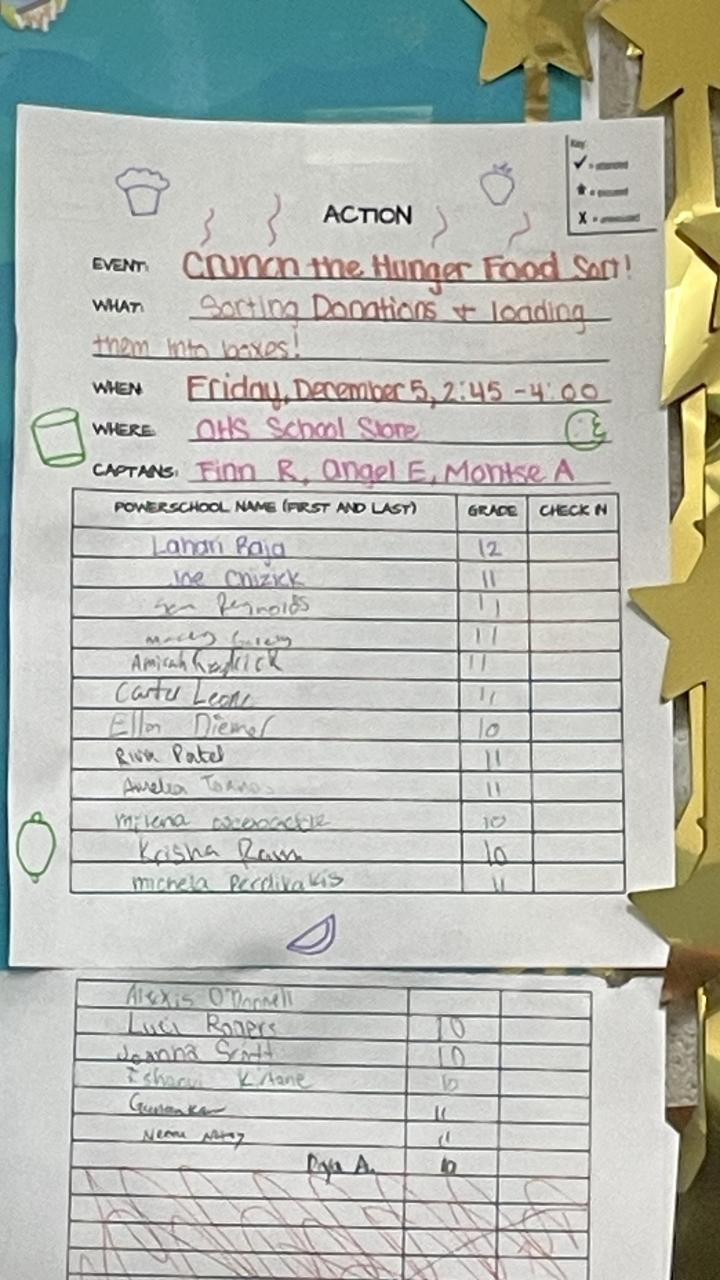 Key:
✓ =
* = excused
X =
ACTION
EVENT: Crunch the Hunger Food Sort!
WHAT: Sorting Donations + loading
them into boxes!
WHEN: Friday, December 5, 2:45 - 4:00
WHERE: OHS School Store
CAPTAINS: Finn R, Angel E, Montse A
POWERSCHOOL NAME (FIRST AND LAST) GRADE CHECK IN
Lahari Raja 12
Chizick 11
Reynolds 11
11
Amirah 11
Carter Leone 11
Diemer 10
Riva Patel 11
Amelia 11
Milena 10
Krisha Ram 10
Michela Perdikakis 11
Alexis O'Donnell
Luci Rogers 10
Joanna Scott 10
10
11
11
A. 10